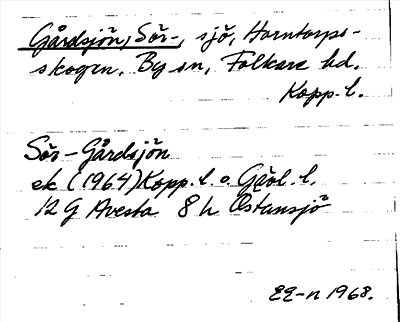 Gårdsjön, Sör-, sjö, Horntorps-
skogen, By sn, Folkare hd.
Kopp. l.
Sör-Gårdsjön
ek (1964) Kopp. l. o. Gävl. l.
12 G Avesta 8 h Östansjö
EE-n 1968.